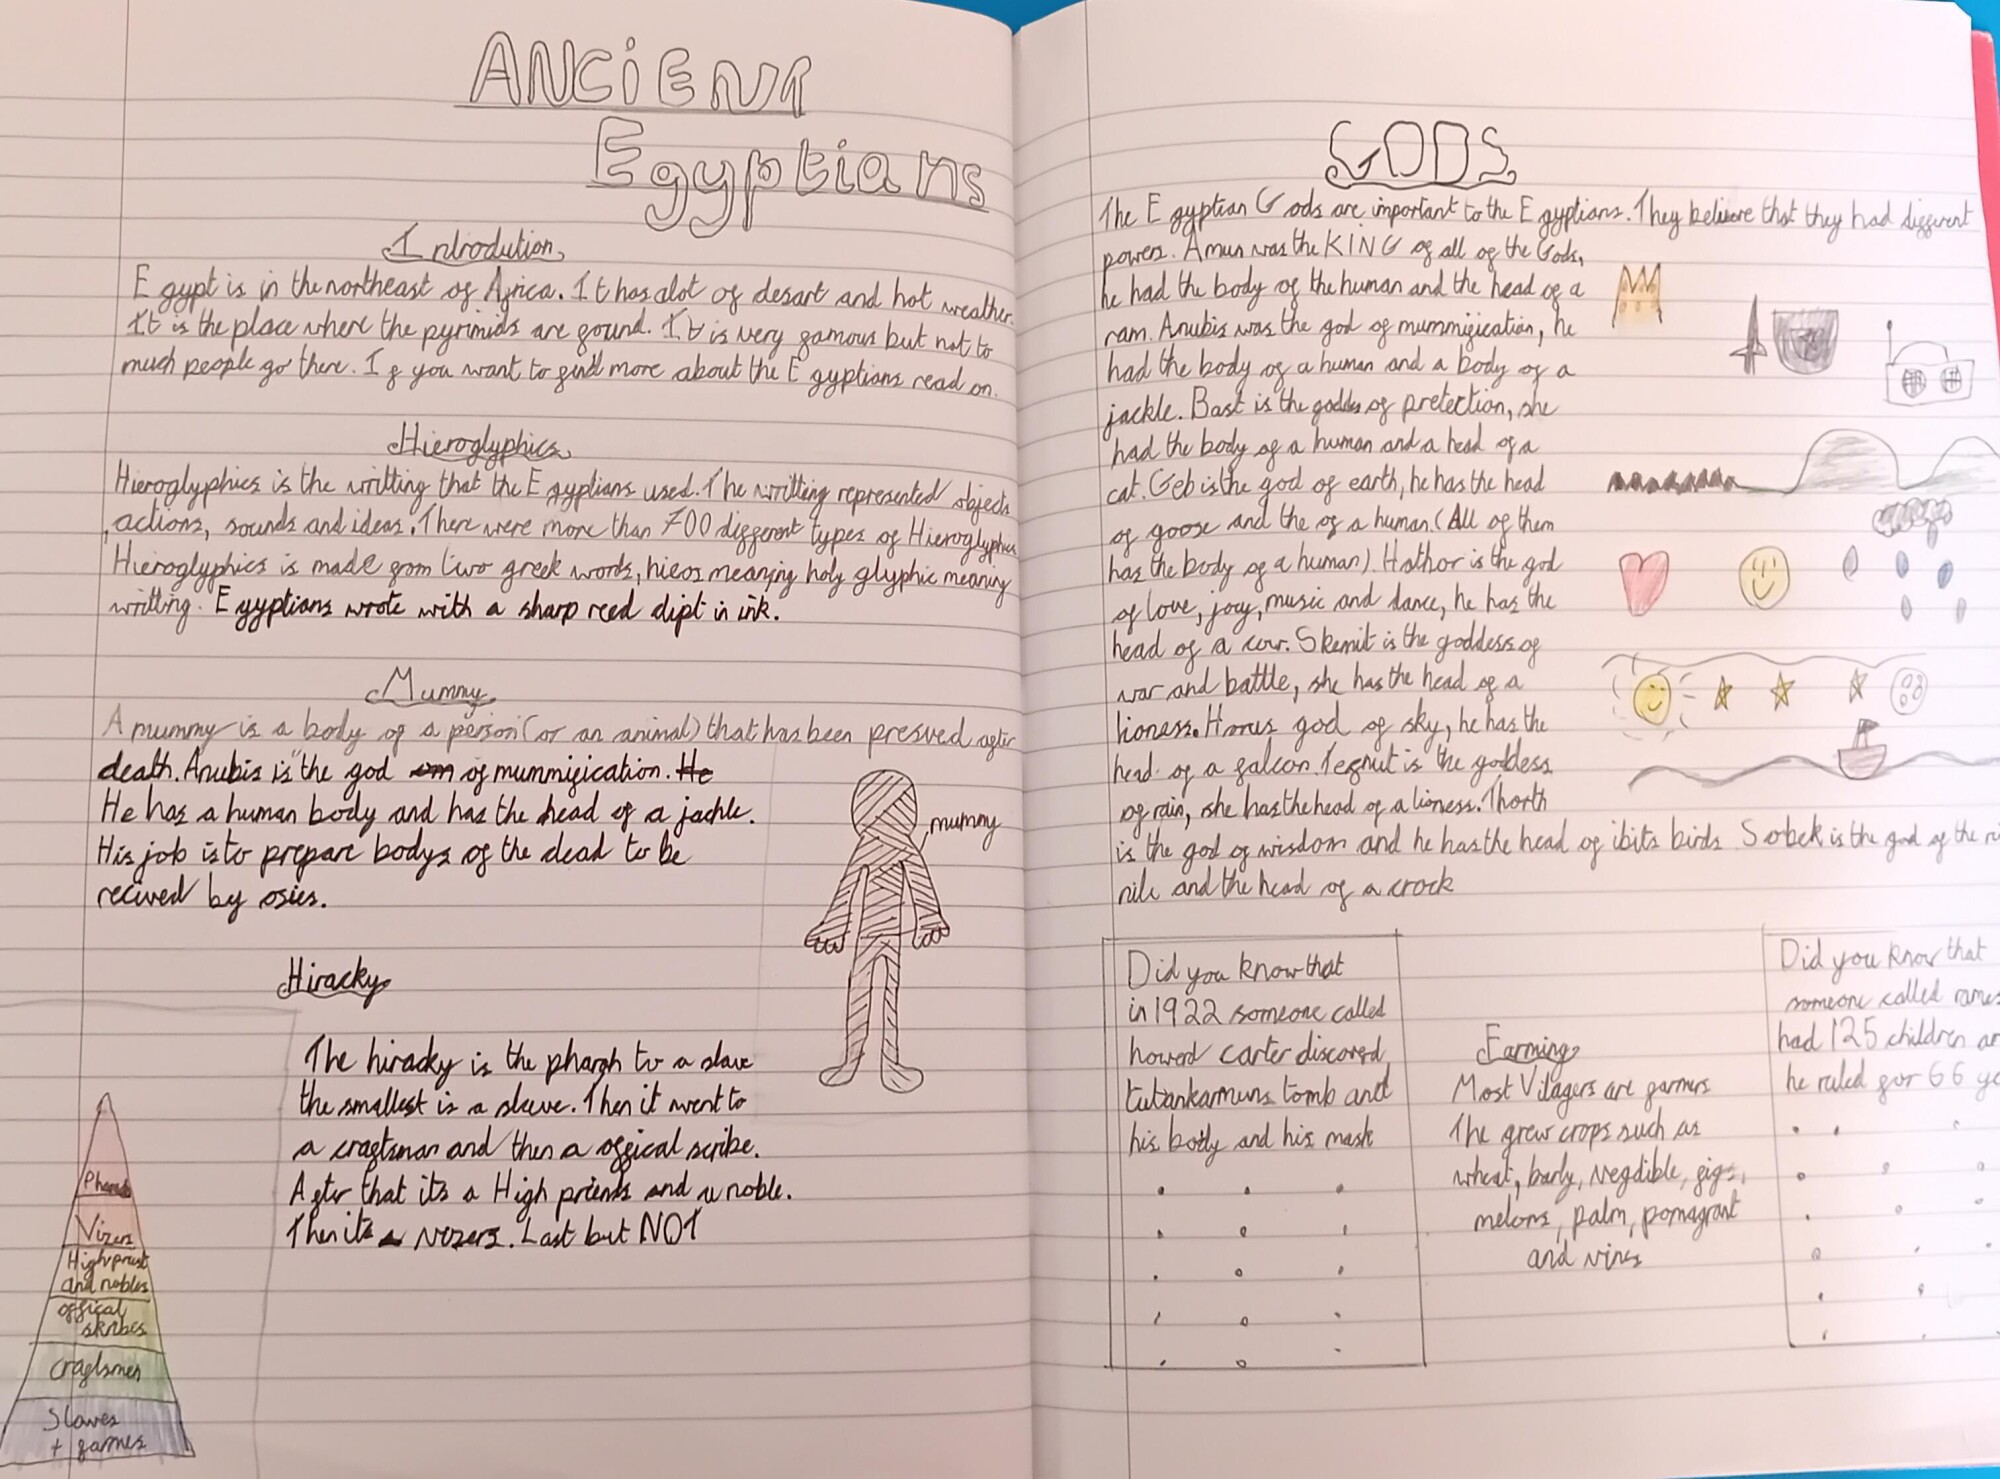 ANCiENT
Egyptians
Introdution
Egypt is in the northeast of Africa. It has alot of desart and hot weather.
It is the place where the pyrimids are found. It is very famous but not to
much people go there. If you want to find more about the Egyptians read on.
Hieroglyphics
Hieroglyphics is the writting that the Egyptians used. The writting represented objects
, actions, sounds and ideas. There were more than 700 different types of Hieroglyphics
Hieroglyphics is made from two greek words, hieos meaning holy glyphic meaning
writting. Egyptians wrote with a sharp reed dipt in ink.
Mummy
A mummy is a body of a person (or an animal) that has been presved after
death. Anubis is the god of mummification. He
He has a human body and has the head of a jackle.
His job is to prepare bodys of the dead to be
recived by osies.
mummy
Hiracky
The hiracky is the pharoh to a slave
the smallest is a sleve. Then it went to
a craftsman and then a offical scribe.
After that its a High prients and a noble.
Then its a vizers. Last but NOT
Vizers
High priest
and nobles
offical
skribes
craftsmen
Slaves
+ farmes
GODS
The Egyptian Gods are important to the Egyptians. They believe that they had different
powers. Amun was the KING of all of the Gods,
he had the body of the human and the head of a
ram. Anubis was the god of mummification, he
had the body of a human and a body of a
jackle. Bast is the goddes of pretection, she
had the body of a human and a head of a
cat. Geb is the god of earth, he has the head
of goose and the of a human. (All of them
has the body of a human). Hathor is the god
of love, joy, music and dance, he has the
head of a cow. Skemit is the goddess of
war and battle, she has the head of a
lioness. Horus god of sky, he has the
head of a falcon. Tefnut is the goddess
of rain, she has the head of a lioness. Thorth
is the god of wisdom and he has the head of ibits birds. Sobek is the god of the
nile and the head of a crock
Did you know that
in 1922 someone called
howerd carter discoverd
tutankamuns tomb and
his body and his mask
Farming
Most Villagers are farmers
The grew crops such as
wheat, barly, vegdible, figs,
melons, palm, pomagrant
and vines
Did you know that
someone called
had 125 children
he ruled for 66